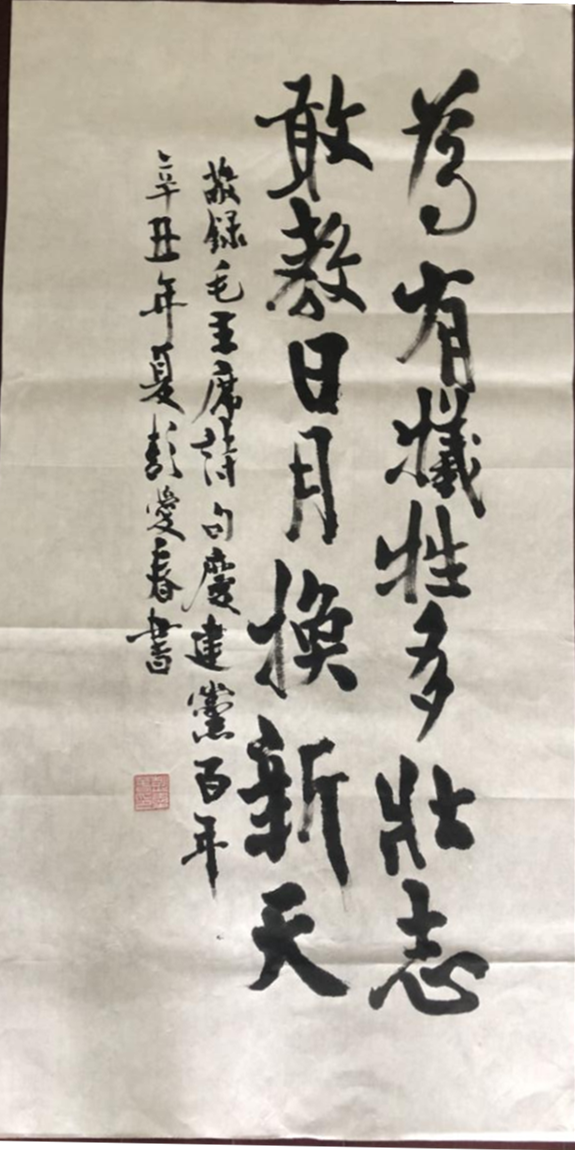 為有犧牲多壯志
敢教日月換新天
敬録毛主席詩句慶建黨百年
辛丑年夏彭愛春書